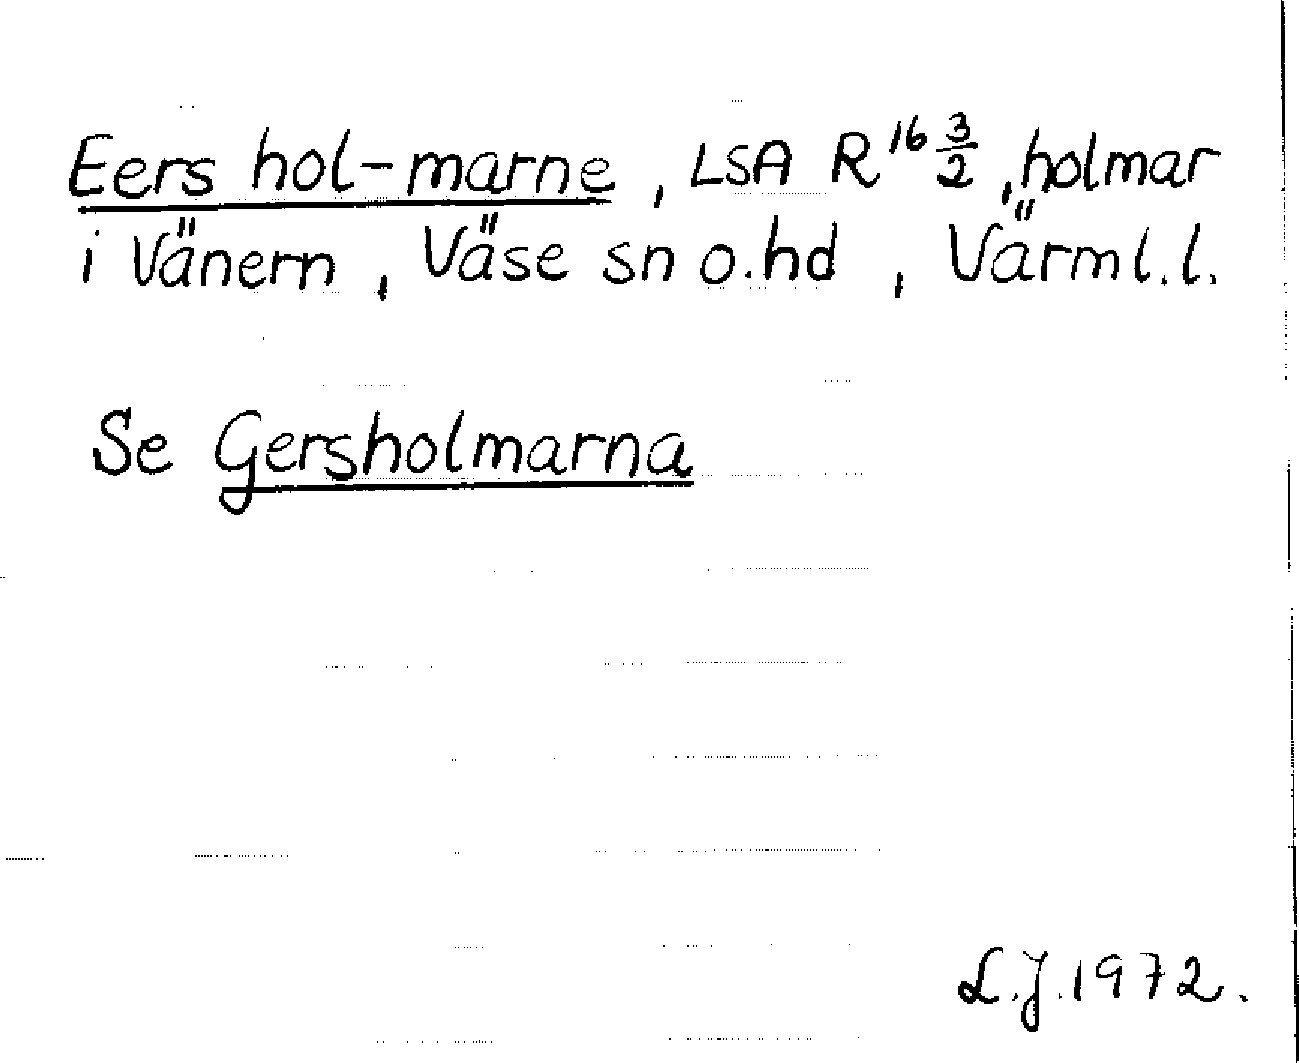 Eers hol-marne, LSA R 16 3/2, holmar
i Vänern, Väse sn o.hd, Värml.l.
Se Gersholmarna
L.J. 1972.